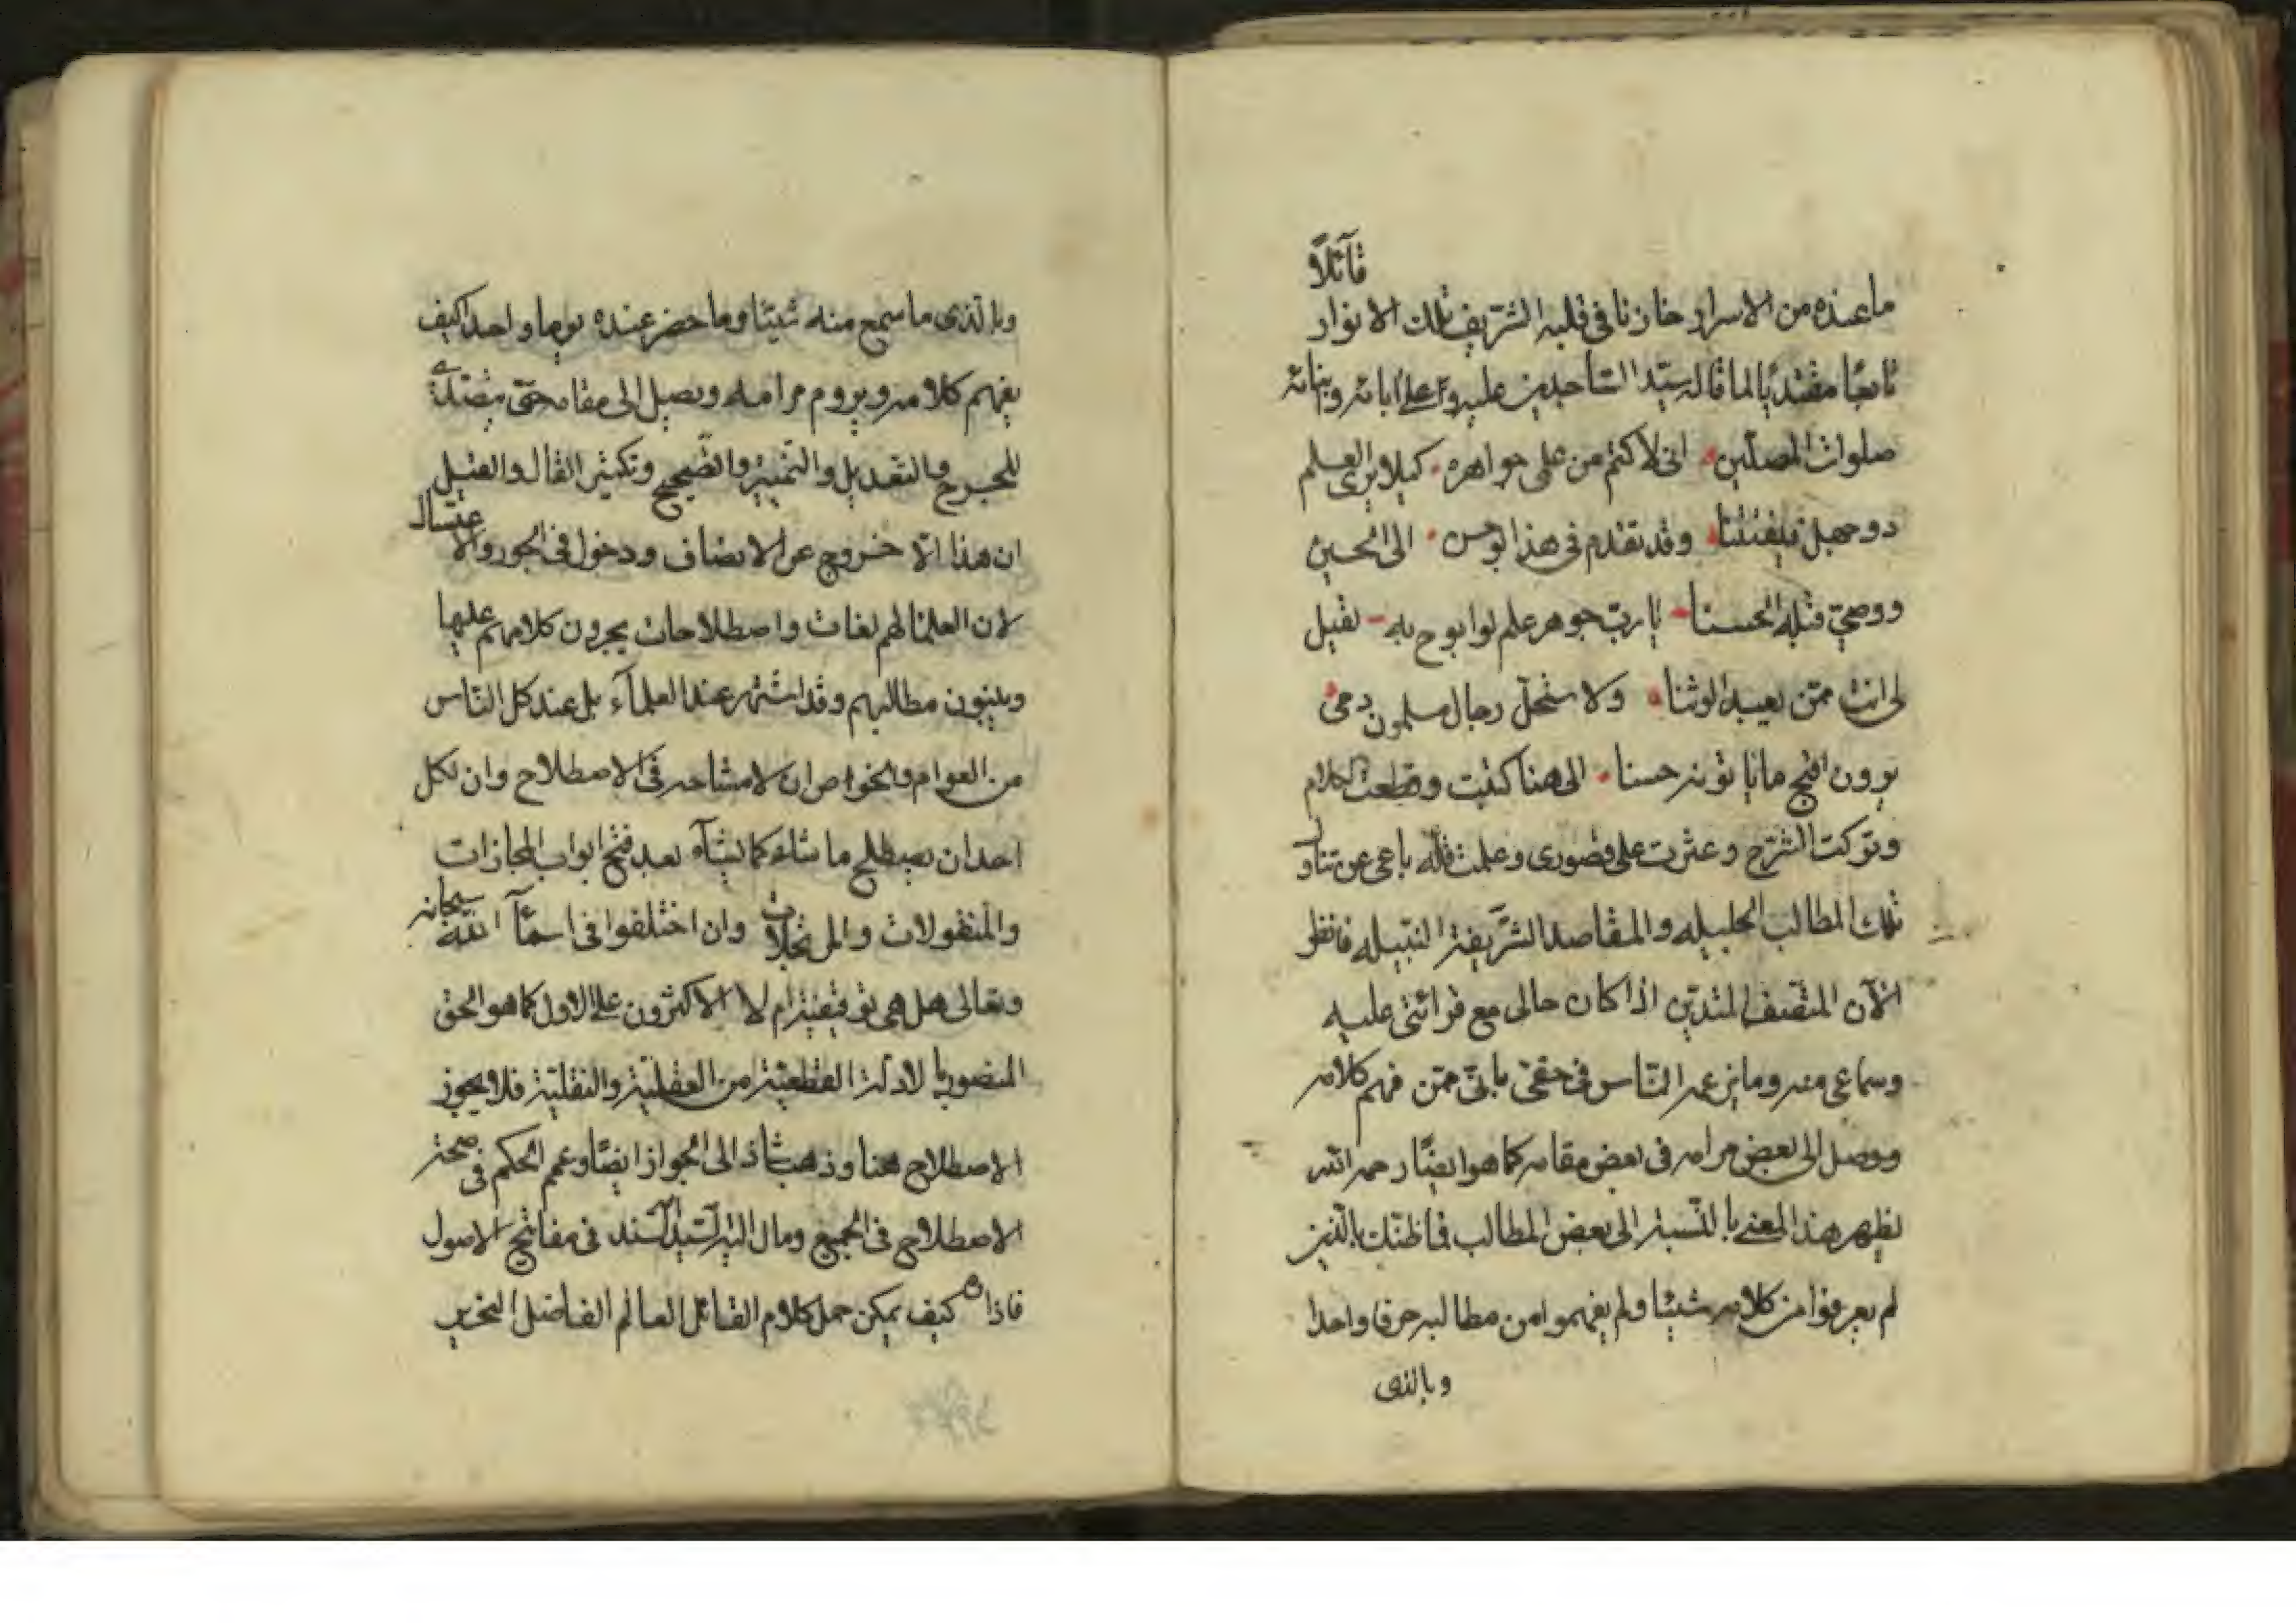 قآئلاً
ما عنده من الاسرار خازنا فى قلبه الشريف تلك الانوار
تابعًا مقتديًا لما قاله سيّد السّاجدين عليه وعلى ابائه وبنائه
صلوات المصلّين انى لاكتم من علمى جواهره كيلا يرى العلم
ذو جهل فيفتتنا وقد تقدم فى هذا ابو حسن الى الحسين
ووصىّ قبله الحسنا يا ربّ جوهر علم لو ابوح به لقيل
لى انت ممّن يعبد الوثنا ولاستحلّ رجال مسلمون دمى
يرون اقبح ما يأتونه حسنا الى هنا كتبت وقطعت الكلام
وتركت الشرح وعثرت على قصورى وعلمت قلّه باعى عن تناول
تلك المطالب الجليله والمقاصد الشّريفة النبيله فانظر
الآن المنصف المتديّن اذا كان حالى مع قرائتى عليه
وسماعى منه وما يزعمه النّاس فى حقى بانّى ممّن فهم كلامه
ووصل الى بعض مرامه فى بعض مقامه كما هو ايضًا رحمه الله
يظهر هذا المعنى بالنّسبة الى بعض المطالب فما ظنّك بالّذين
لم يعرفوا من كلامه شيئا ولم يفهموا من مطالبه حرفا واحدا
وبالذى
وبالّذى ما سمع منه شيئا وما حضر عنده يوما واحدا كيف
يفهم كلامه ويروم مرامه ويصل الى مقامه حتى يتصدّى
للجرح والتعديل والتمييز والتّصحيح وتكثير القال والقيل
ان هذا الّا خروج عن الانصاف ودخول فى الجور والاعتساف
لان العلما لهم لغات واصطلاحات يجرون كلامهم عليها
ويبنون مطالبهم وقد اشتهر عند العلمآء بل عند كل النّاس
من العوام والخواص ان لا مشاحه فى الاصطلاح وان لكل
احد ان يصطلح ما شاء كما يشآء بعد فتح ابواب المجازات
والمنقولات والمرتجلات وان اختلفوا فى اسمآء الله سبحانه
وتعالى هل هى توقيفيّة ام لا الاكثرون على الاول كما هو الحق
المنصور بالادلّة القطعيّة من العقليّة والنقليّة فلا يجوز
الاصطلاح هنا وذهب شاذ الى الجواز ايضًا وعمم الحكم فى صحّة
الاصطلاح فى الجميع ومال اليه السّيد السّند فى مفاتيح الاصول
فاذا كيف يمكن حمل كلام القائل العالم الفاضل النحرير